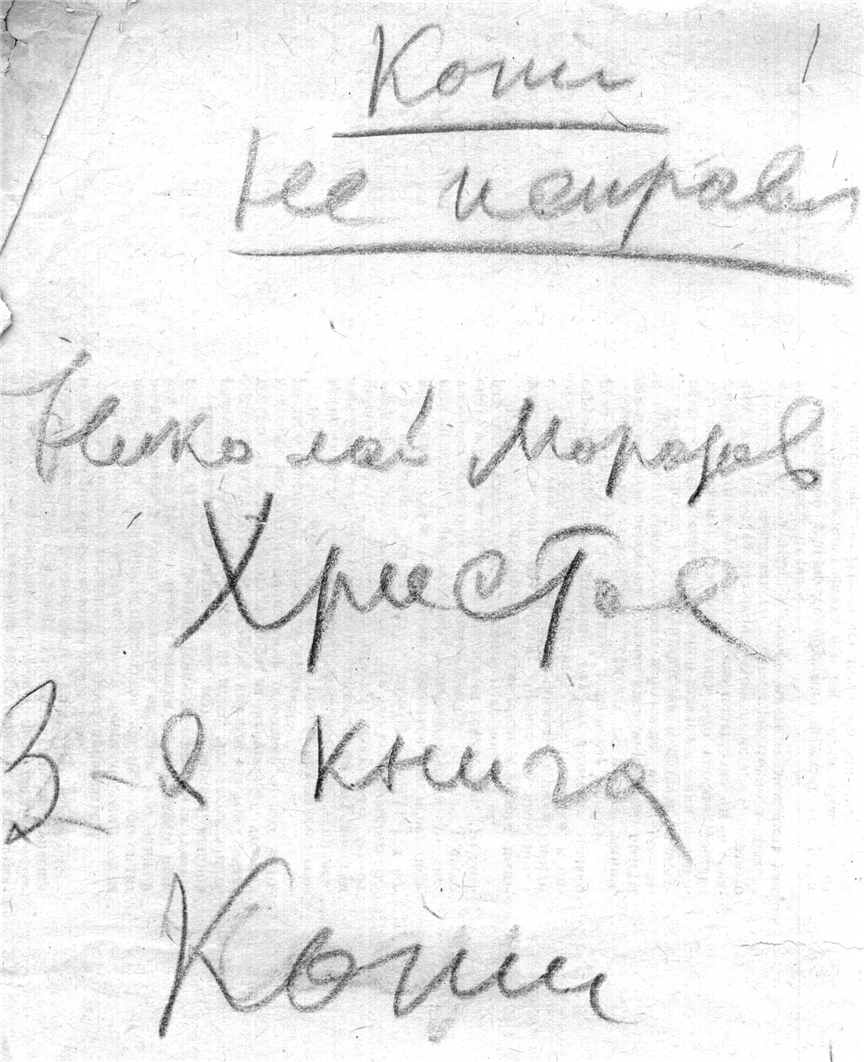 Копии
Не исправл
Николай Морозов
Христос
3-я книга
Копии